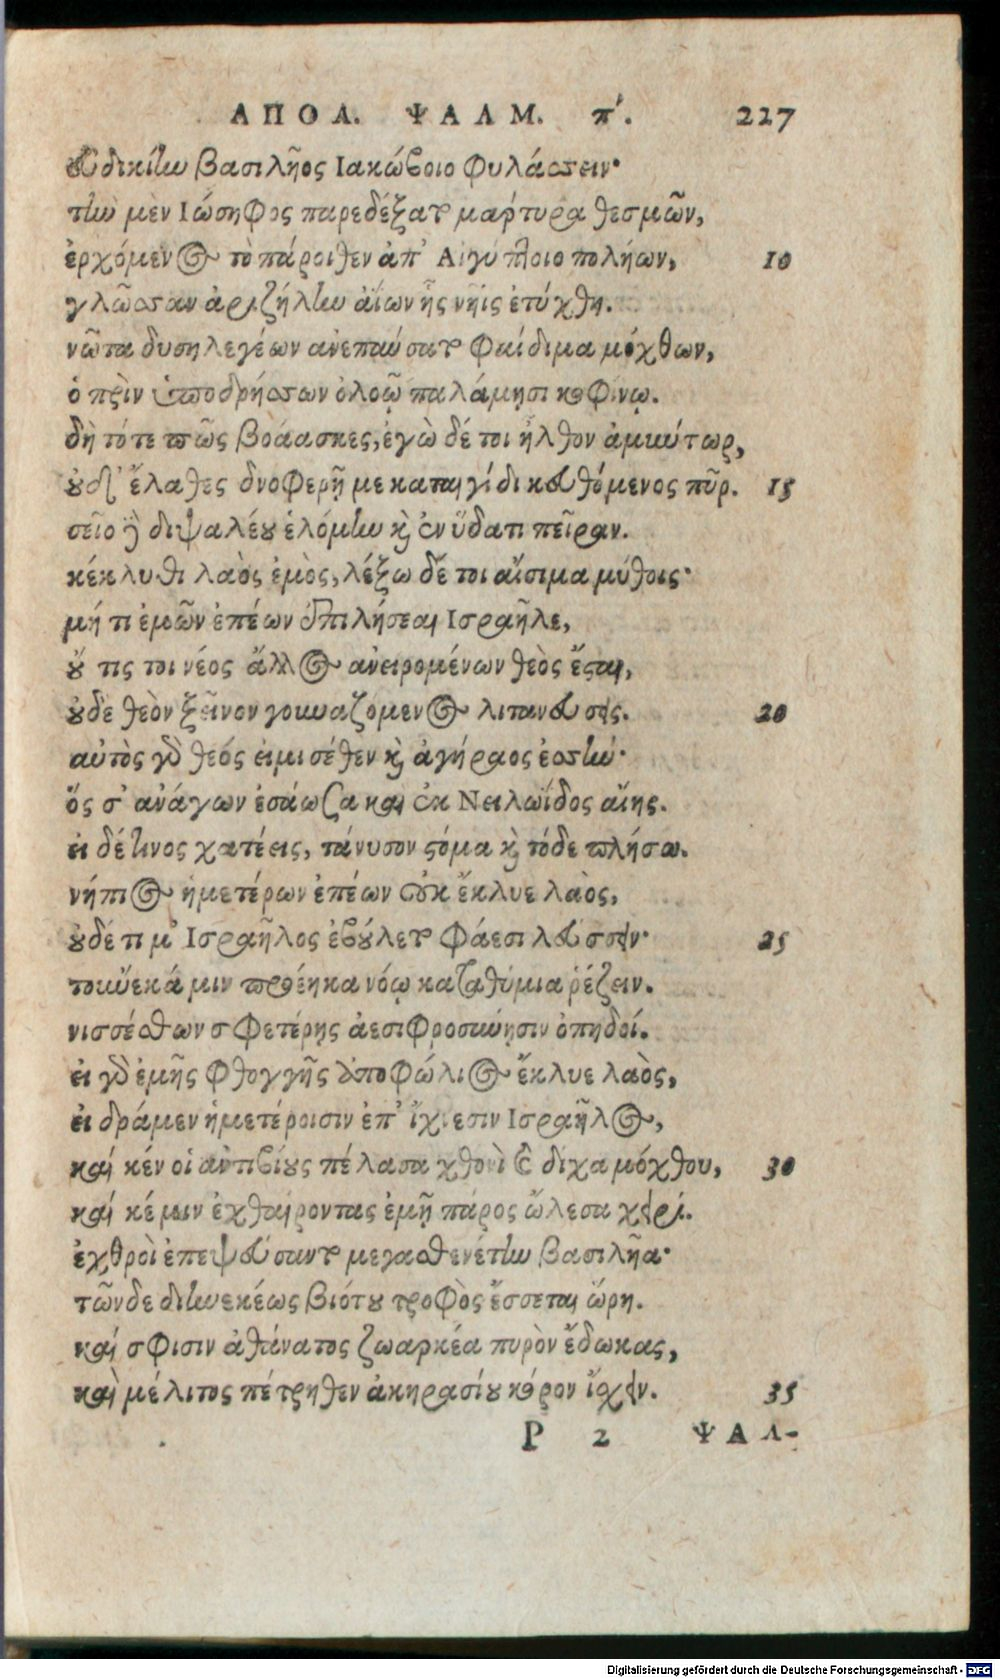 ΑΠΟΛ. ΨΑΛΜ. π´. 227
εὐδικίην βασιλῆος Ιακώβοιο φυλάσσειν·
τὴν μὲν Ιώσηφος παρεδέξατο μάρτυρα θεσμῶν,
ἐρχόμενος τὸ πάροιθεν ἀπ' Αἰγύπτοιο πολήων, 10
γλῶσσαν ἀριζήλην ἀΐων ἧς νῆϊς ἐτύχθη.
νῶτα δυσηλεγέων ἀνεπαύσατο φαίδιμα μόχθων,
ὁ πρὶν ὑποδρήσσων ὀλοῷ παλάμησι κοφίνῳ.
δὴ τότε πῶς βοάασκες, ἐγὼ δέ τοι ἦλθον ἀμύντωρ,
οὐδ' ἔλαθες δνοφερῇ με καταιγίδι κευθόμενος πῦρ. 15
σεῖο δὲ διψαλέου ἑλόμην καὶ ἐν ὕδατι πεῖραν.
κέκλυθι λαὸς ἐμὸς, λέξω δέ τοι αἴσιμα μύθοις·
μή τι ἐμῶν ἐπέων ἐπιλήσεαι Ισραῆλε,
οὔ τις τοι νέος ἄλλος ἀνειρομένων θεὸς ἔσται,
οὐδὲ θεὸν ξεῖνον γουναζόμενος λιτανεύσεις. 20
αὐτὸς γὰρ θεός εἰμι σέθεν καὶ ἀγήραος ἐσσὴν·
ὅς σ' ἀνάγων ἐσάωσα καὶ ἐκ Νειλωΐδος αἴης.
εἰ δέ τινος χατέεις, τάνυσον στόμα καὶ τόδε πλήσω.
νήπιος ἡμετέρων ἐπέων οὐκ ἔκλυε λαὸς,
οὐδέ τι μ' Ισραῆλος ἐβούλετο φάεσι λεύσσειν· 25
τοὔνεκά μιν προέηκα νόῳ καταθύμια ῥέζειν.
νισσέσθων σφετέρης ἀεσιφροσύνησιν ὀπηδοί.
εἰ γὰρ ἐμῆς φθογγῆς ἀποφώλιος ἔκλυε λαὸς,
εἰ δράμεν ἡμετέροισιν ἐπ' ἴχνεσιν Ισραῆλος,
καί κέν οἱ ἀντιβίους πέλασα χθονὶ καὶ δίχα μόχθου, 30
καί κέ μιν ἐχθαίροντας ἐμῇ πάρος ὤλεσα χειρί.
ἐχθροὶ ἐπεψεύσαντο μεγασθενέτην βασιλῆα·
τῶνδε διηνεκέως βιότου τροφὸς ἔσσεται ὥρη.
καί σφισιν ἀθάνατος ζωαρκέα πυρὸν ἔδωκας,
καὶ μέλιτος πέτρηθεν ἀκηρασίου κόρον ἴσχειν. 35
P 2 ΨΑΛ-
Digitalisierung gefördert durch die Deutsche Forschungsgemeinschaft - DFG